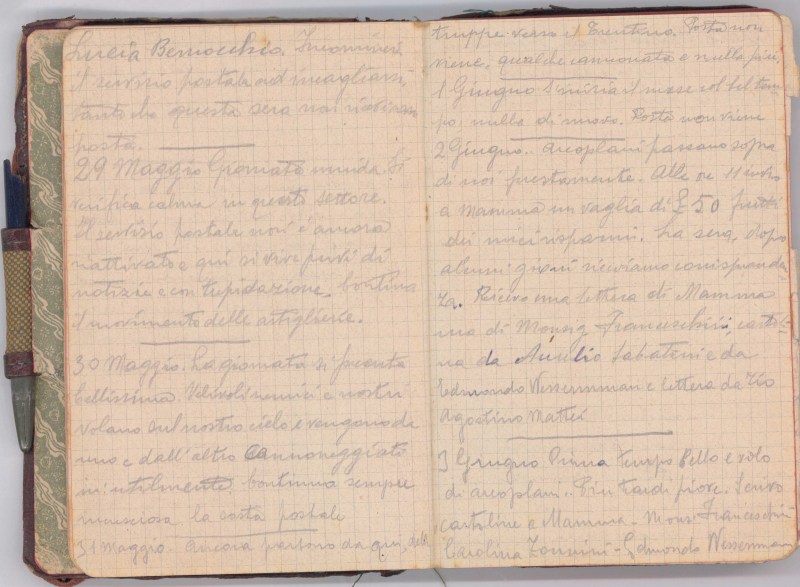 Lucia Bernocchio. Incomincia
il servizio postale ad incagliarsi,
tanto che questa sera non riceviamo
posta.
29 Maggio Giornata umida. Si
verifica calma in questo settore.
Il servizio postale non è ancora
riattivato e qui si vive privi di
notizie e con trepidazione. Continua
il movimento delle artiglierie.
30 Maggio. La giornata si presenta
bellissima. Velivoli nemici e nostri
volano sul nostro cielo e vengono da
uno e dall'altro cannoneggiato
inutilmente. Continua sempre
la posta
31 Maggio. Ancora partono da qui, delle
truppe verso il Trentino. Posta non
viene, qualche cannonata e nulla più.
1 Giugno Si inizia il mese col bel tem-
po, nulla di nuovo. Posta non viene
2 Giugno. Aeroplani passano sopra
di noi prestamente. Alle ore 11 invio
a Mamma un vaglia di £ 50 frutti
dei miei risparmi. La sera, dopo
alcuni giorni riceviamo corrisponden
za. Ricevo una lettera di Mamma
una di Monsig. Franceschini, cartoli-
na da Aurelio Sabatini e da
Edmondo Wessermman e lettera da Zio
Agostino Mattei
3 Giugno Prima tempo bello e volo
di aeroplani. Più tardi piove. Scrivo
cartoline a Mamma. Mons. Franceschini
Carolina Zannini - Edmondo Wesserman